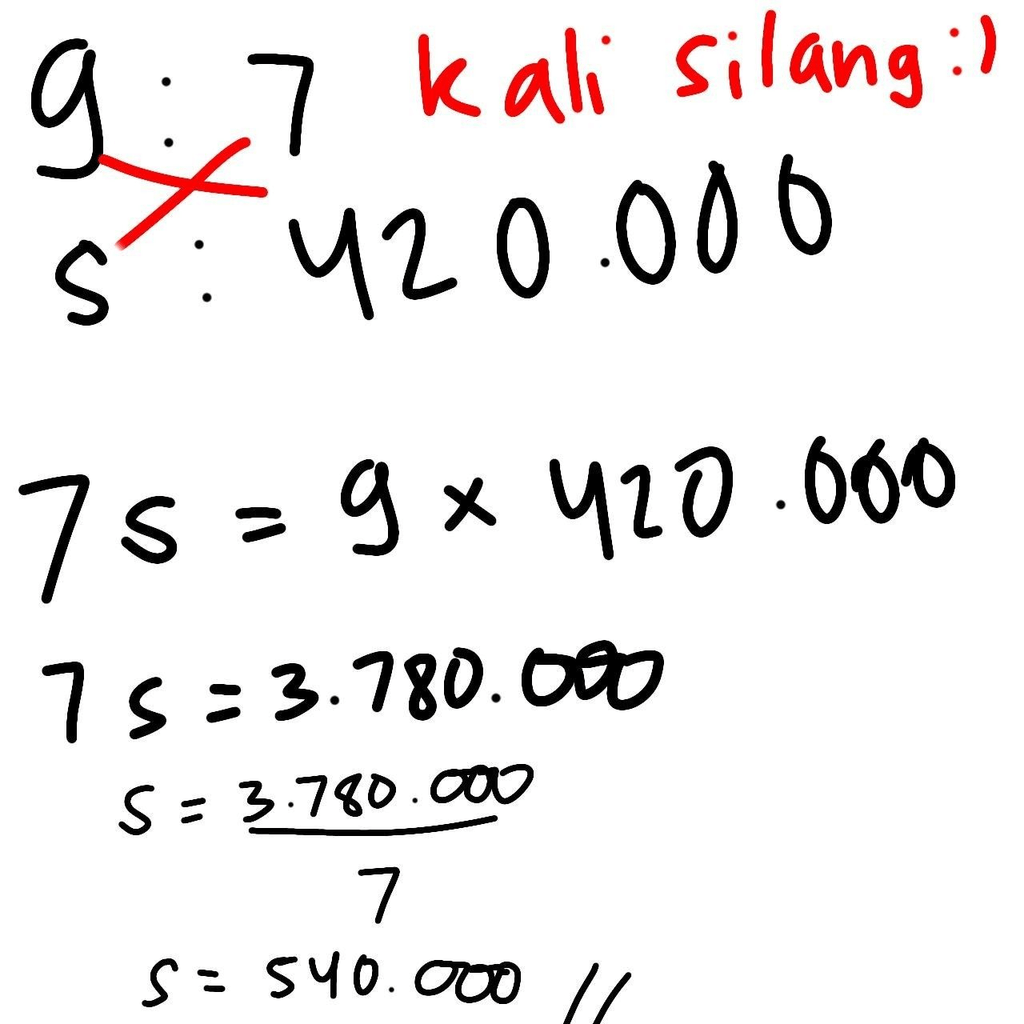 9 : 7 kali silang :)
s : 420.000
7s = 9 x 420.000
7s = 3.780.000
s = 3.780.000
7
s = 540.000 //